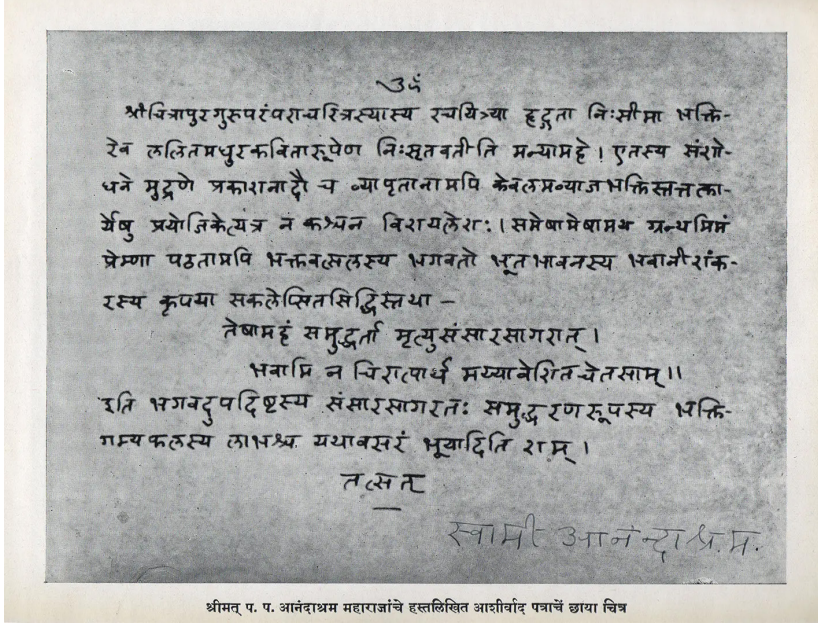 ॐ
श्रीचित्रापुरगुरुपरंपराचरित्रस्यास्य रचयित्र्या हृद्गता निःसीमा भक्ति-
रेव ललितमधुरकवितारूपेण निःसृतवतीति मन्यामहे । एतस्य संशो-
धने मुद्रणे प्रकाशनादौ च व्यापृतानामपि केवलमव्याजभक्तिस्तत्तत्का-
र्येषु प्रयोजिकेत्यत्र न कश्चन विशयलेशः । समेषामेषामथ ग्रन्थमिमं
प्रेम्णा पठतामपि भक्तवत्सलस्य भगवतो भूतभावनस्य भवानीशंक-
रस्य कृपया सकलेप्सितसिद्धिस्तथा –
तेषामहं समुद्धर्ता मृत्युसंसारसागरात् ।
भवामि न चिरात्पार्थ मय्यावेशितचेतसाम् ॥
इति भगवदुपदिष्टस्य संसारसागरतः समुद्धरणरूपस्य भक्ति-
गम्यफलस्य लाभश्च यथावसरं भूयादिति शम् ।
तत्सत्
स्वामी आनंदाश्रम.
श्रीमत् प. प. आनंदाश्रम महाराजांचे हस्तलिखित आशीर्वाद पत्राचें छाया चित्र